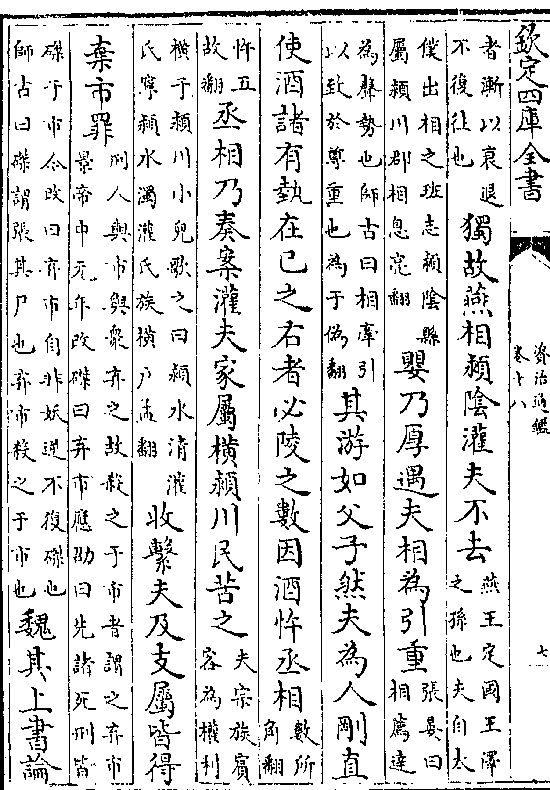 欽定四庫全書
資治通鑑
卷十八
七
者漸以衰退
不復往也
獨故燕相潁陰灌夫不去
燕王定國王澤
之孫也夫自太
僕出相之班志潁陰縣
屬潁川郡相息亮翻
嬰乃厚遇夫相為引重
張晏曰
相薦達
為聲勢也師古曰相牽引
以致於尊重也為于偽翻
其游如父子然夫為人剛直
使酒諸有埶在已之右者必陵之數因酒忤丞相
數所
角翻
忤五
故翻
丞相乃奏案灌夫家屬橫潁川民苦之
夫宗族賓
客為權利
橫于潁川小兒歌之曰潁水清灌
氏寧潁水濁灌氏族橫戶孟翻
收繫夫及支屬皆得
棄市罪
刑人與市與衆弃之故殺之于市者謂之弃市
景帝中元年改磔曰弃市應劭曰先諸死刑皆
磔于市今改曰弃市自非妖逆不復磔也
師古曰磔謂張其尸也弃市殺之于市也
魏其上書論